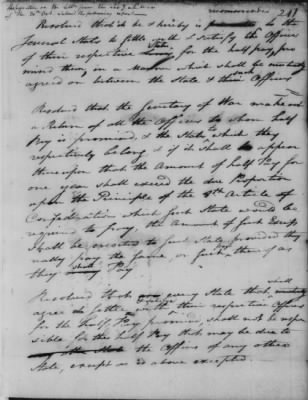 of the 30th Oct.
recommended
241
Resolved that it be & hereby is to the
several States to settle with & satisfy the Officers
of their respective Lines for the half pay pro
mised them, in a Manner which shall be mutually
agreed on between the State & their Officers
Resolved that the Secretary of War make out
a Return of all the Officers to whom half
Pay is promised, & the State to which they
respectively belong & if it shall appear
thereupon that the Amount of half Pay for
one year shall exceed the due Proportion
upon the Principle of the 8th Article of
Confederation which such State would be
required to pay, the Amount of such Excess
shall be credited to such State provided they
really pay the same, or such Part thereof as
they shall Pay
Resolved that every State that shall
agree & settle with their respective Officers
for the half Pay promised, shall not be respon
sible for the half Pay that may be due to
the Officers of any other
State, except as is above excepted.